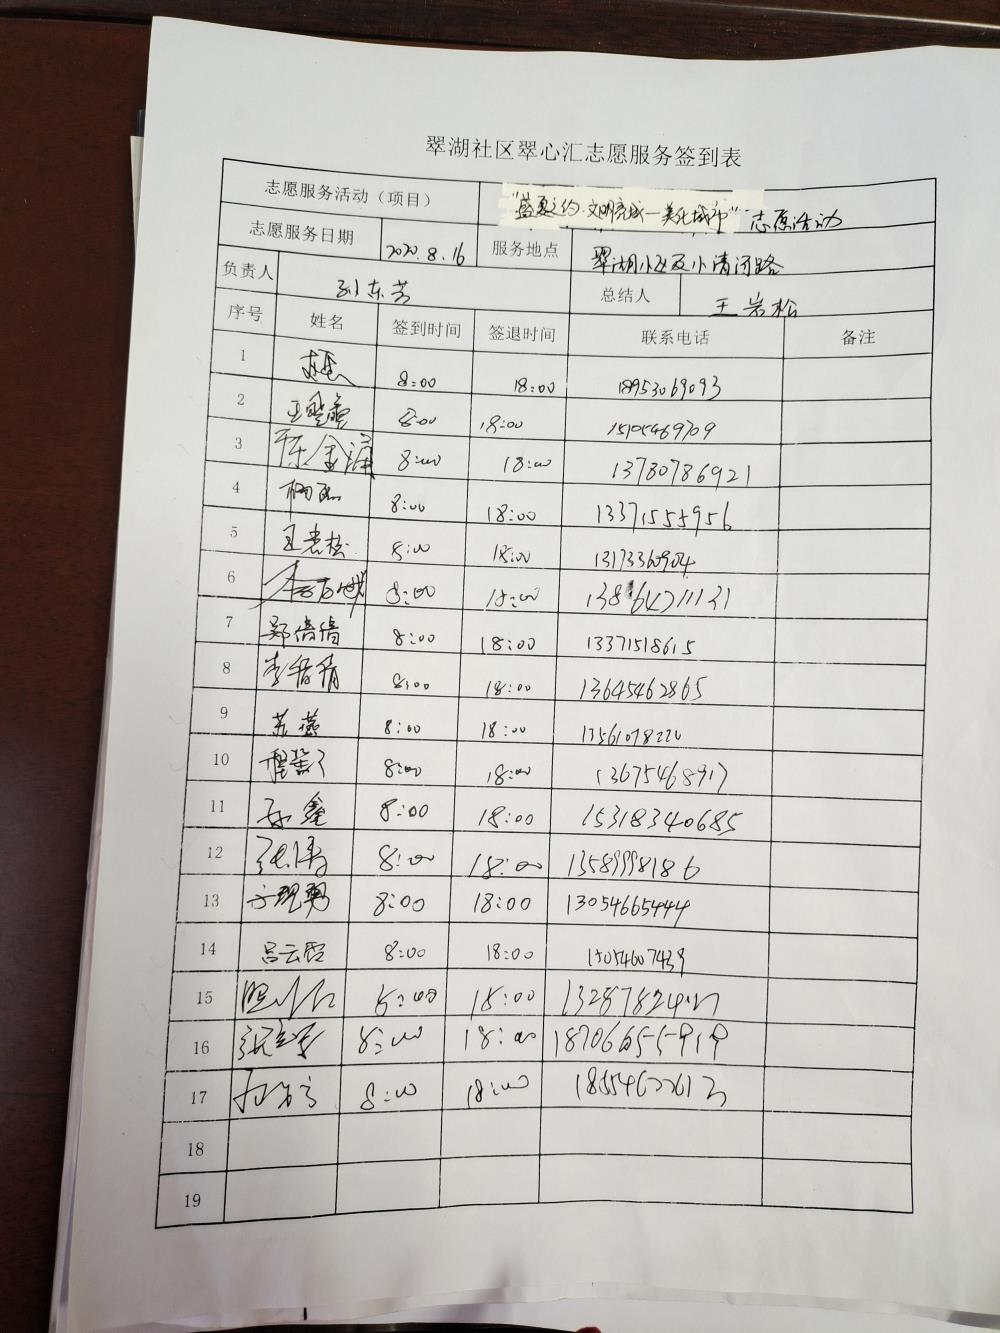 翠湖社区翠心汇志愿服务签到表
志愿服务活动（项目） "盛夏之约·文明亮城—美化城市"志愿活动
志愿服务日期 2020.8.16 服务地点 翠湖小区及小清河路
负责人 孙东芳 总结人 王岩松
序号 姓名 签到时间 签退时间 联系电话 备注
1 8:00 18:00 18953069093
2 8:00 18:00 15105469709
3 陈金涌 8:00 18:00 13780786921
4 8:00 18:00 13371555956
5 王岩松 8:00 18:00 13173360904
6 8:00 18:00 13864711131
7 郑倩倩 8:00 18:00 13371518615
8 李倩倩 8:00 18:00 13645462865
9 苏燕 8:00 18:00 13561078220
10 8:00 18:00 13675468917
11 孙鑫 8:00 18:00 15318340685
12 张涛 8:00 18:00 13589998186
13 8:00 18:00 13054665444
14 吕云臣 8:00 18:00 15054607439
15 8:00 18:00
16 8:00 18:00 18706655919
17 8:00 18:00
18
19